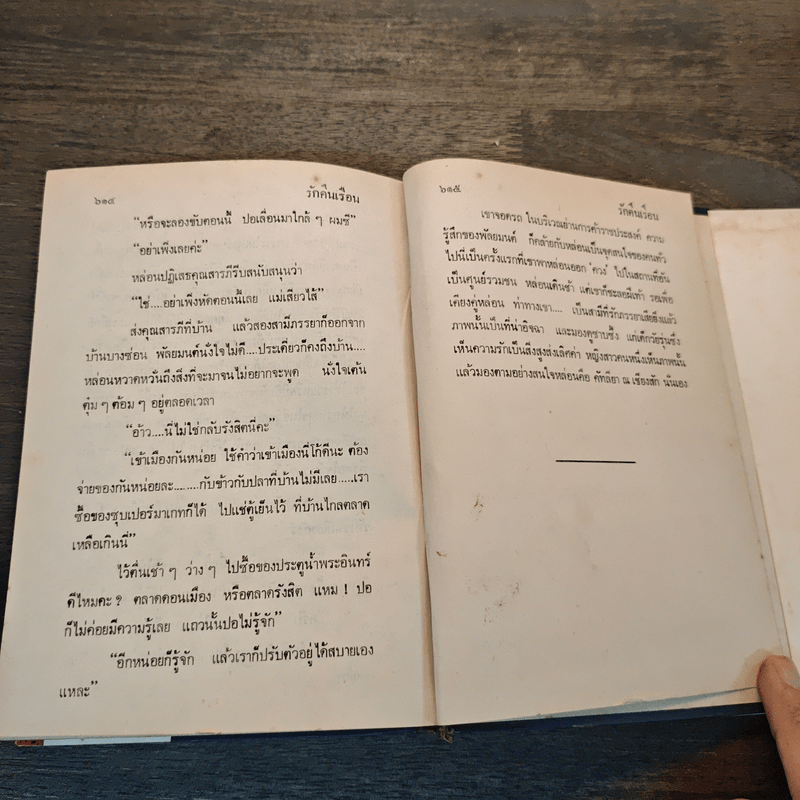 ๖๑๔
รักคืนเรือน
“หรือจะลองขับตอนนี้ ปอเลื่อนมาใกล้ ๆ ผมซี”
“อย่าเพิ่งเลยค่ะ”
หล่อนปฏิเสธคุณสารภีรีบสนับสนุนว่า
“ใช่....อย่าเพิ่งหัดตอนนี้เลย แม่เสียวไส้”
ส่งคุณสารภีที่บ้าน แล้วสองสามีภรรยาก็ออกจาก
บ้านบางซ่อน พัลยมนต์นั่งใจไม่ดี....ประเดี๋ยวก็คงถึงบ้าน....
หล่อนหวาดหวั่นถึงสิ่งที่จะมาจนไม่อยากจะพูด นั่งใจเต้น
ตุ๋ม ๆ ต้อม ๆ อยู่ตลอดเวลา
“อ้าว....นี่ไม่ใช่กลับรังสิตนี่คะ”
“เข้าเมืองกันหน่อย ใช้คำว่าเข้าเมืองนี่โก้ดีนะ ต้อง
จ่ายของกันหน่อยละ........กับข้าวกับปลาที่บ้านไม่มีเลย....เรา
ซื้อของซุบเปอร์มาเกทก็ได้ ไปแช่ตู้เย็นไว้ ที่บ้านไกลตลาด
เหลือเกินนี่”
ไว้ตื่นเช้า ๆ ว่าง ๆ ไปซื้อของประตูน้ำพระอินทร์
ดีไหมคะ? ตลาดดอนเมือง หรือตลาดรังสิต แหม ! ปอ
ก็ไม่ค่อยมีความรู้เลย แถวนั้นปอไม่รู้จัก”
“อีกหน่อยก็รู้จัก แล้วเราก็ปรับตัวอยู่ได้สบายเอง
แหละ”
๖๑๕
รักคืนเรือน
เขาจอดรถ ในบริเวณย่านการค้าราชประสงค์ ความ
รู้สึกของพัลยมนต์ ก็คล้ายกับหล่อนเป็นจุดสนใจของคนทั่ว
ไปนี่เป็นครั้งแรกที่เขาพาหล่อนออก ‘ควง’ ไปในสถานที่อัน
เป็นศูนย์รวมชน หล่อนเดินช้า แต่เขาก็ชะลอฝีเท้า รอเพื่อ
เคียงคู่หล่อน ท่าทางเขา.... เป็นสามีที่รักภรรยาเสียยิ่งแล้ว
ภาพนั้นเป็นที่น่าอิจฉา และมองดูซาบซึ้ง แก่เด็กวัยรุ่นซึ่ง
เห็นความรักเป็นสิ่งสูงส่งเลิศค่า หญิงสาวคนหนึ่งเห็นภาพนั้น
แล้วมองตามอย่างสนใจหล่อนคือ คัทลียา ณ เชียงสัก นั่นเอง